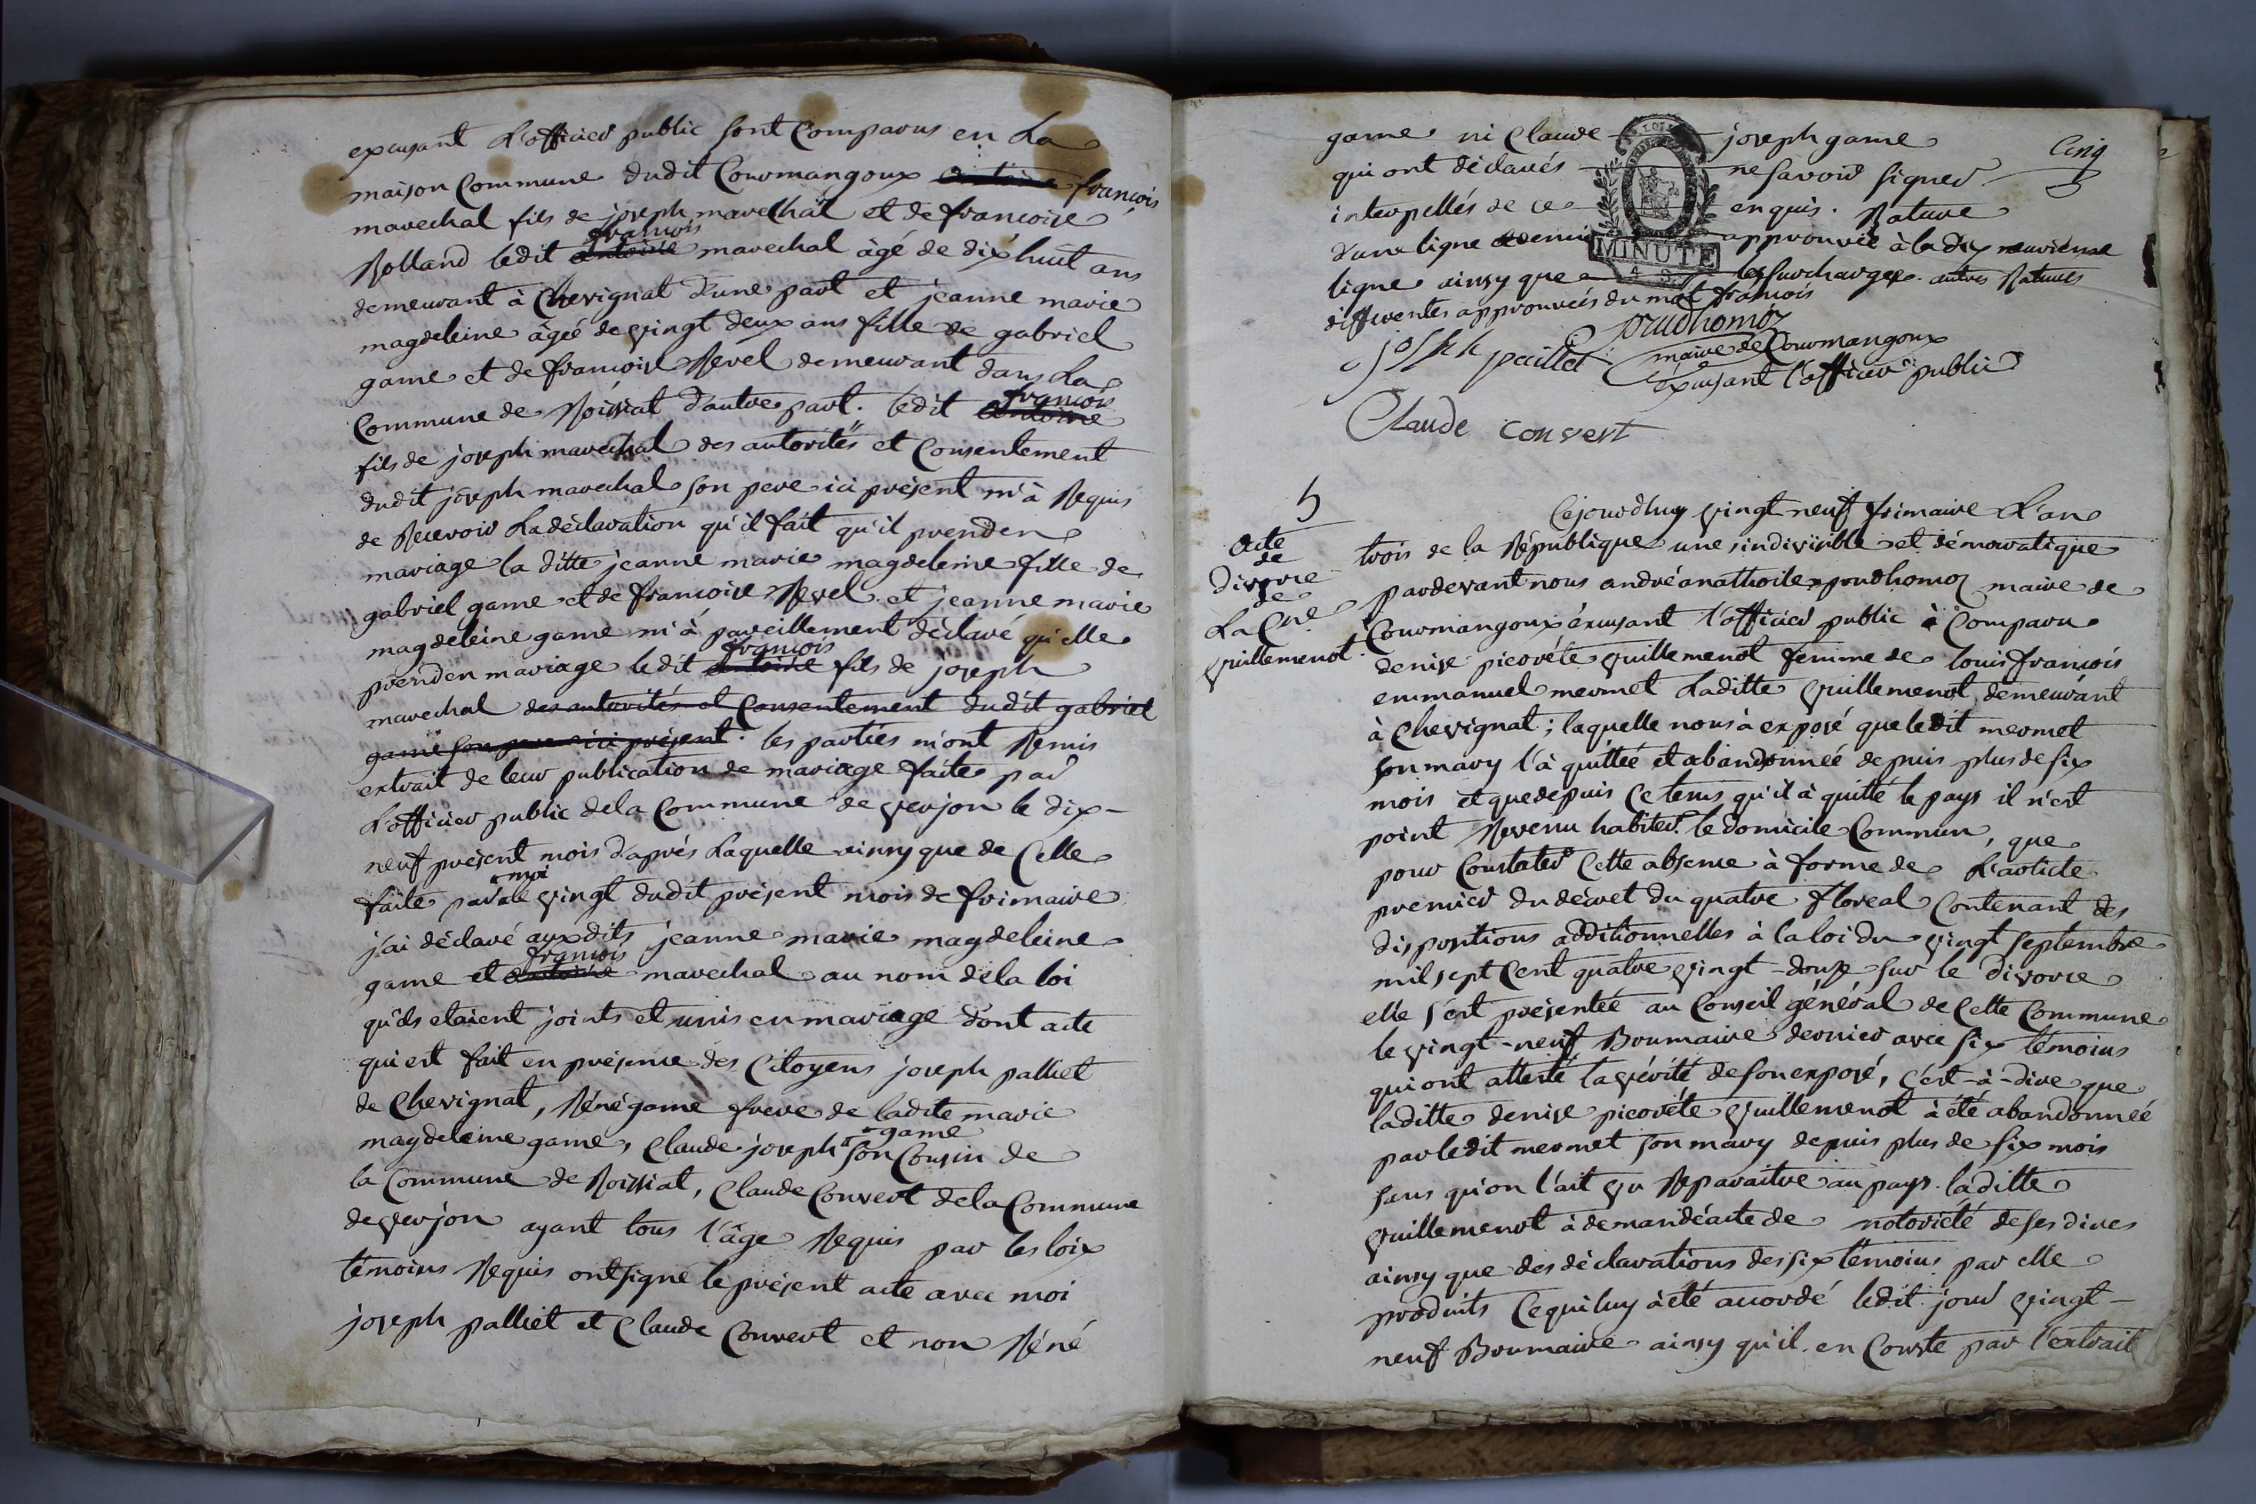 exerçant L'officier public sont Comparus en La
maison Commune dudit Courmangoux antoine françois
marechal fils de joseph marechal et de francoise
françois
Rolland ledit antoine marechal âgé de dix huit ans
demeurant à Chevignat d'une part et jeanne marie
magdeleine âgée de vingt deux ans fille de gabriel
game et de francoise Revel demeurant dans La
françois
Commune de Roissiat d'autre part. ledit antoine
fils de joseph marechal des autorités et Consentement
dudit joseph marechal son pere ici présent m'à Requis
de Recevoir La déclaration qu'il fait qu'il prend en
mariage la ditte jeanne marie magdeleine fille de
gabriel game et de francoise Revel et jeanne marie
magdeleine game m'à pareillement déclaré qu'elle
françois
prend en mariage ledit antoine fils de joseph
marechal des autorités et Consentement dudit gabriel
game son pere ici présent. les parties m'ont Remis
extrait de leur publication de mariage faite par
L'officier public de la Commune de verjon le dix-
neuf présent mois d'aprés Laquelle ainsy que de Celle
moi
faite par le vingt dudit présent mois de frimaire
j'ai déclaré auxdits jeanne marie magdeleine
françois
game et antoine marechal au nom de la loi
qu'ils etaient joints et unis en mariage dont acte
qui est fait en présence des Citoyens joseph palliet
de Chevignat, Réné game frere de ladite marie
game
magdeleine game, Claude joseph son Cousin de
la Commune de Roissiat, Claude Convert de la Commune
de verjon ayant tous l'âge Requis par les loix
témoins Requis ont signé le présent acte avec moi
joseph palliet et Claude Convert et non Réné
game ni Claude joseph game
Cinq
qui ont déclarés ne savoir signer
interpellés de ce enquis. Rature
d'une ligne et demie approuvée à la dix neuvieme
MINUTE
ligne ainsy que les surcharges. autres Ratures
differentes approuvées du mot françois
prudhomoz
joseph paillet
maire de Courmangoux
exerçant l'officier public
Claude convert
5
acte
de
divorce
de
La Cne
vuillemenot.
Cejourdhuy vingt neuf frimaire L'an
trois de la République une, indivisible et démocratique
pardevant nous andré anathoile prudhomoz maire de
Courmangoux éxerçant l'officier public à Comparu
denise picovéte vuillemenot femme de louis françois
emmanuel mermet Laditte vuillemenot demeurant
à Chevignat; laquelle nous à exposé que ledit mermet
son mary l'à quittée et abandonnée depuis plus de six
mois et que depuis Ce tems qu'il à quitté le pays il n'est
point Revenu habiter le domicile Commun, que
pour Constater Cette absence à forme de L'article
premier du décret du quatre floreal Contenant des
dispositions additionnelles à la loi du vingt septembre
mil sept Cent quatre vingt-douze sur le divorce
elle s'est présentée au Conseil général de Cette Commune
le vingt-neuf Brumaire dernier avec six témoins
qui ont attesté la vérité de son exposé, C'est-à-dire que
laditte denise picovéte vuillemenot à été abandonnée
par ledit mermet son mary depuis plus de six mois
sans qu'on l'ait vu Reparaitre au pays. laditte
vuillemenot à demandé acte de notorieté de ses dires
ainsy que des déclarations des six témoins par elle
produits Ce qui luy à été accordé ledit jour vingt-
neuf Brumaire ainsy qu'il en Conste par l'extrait